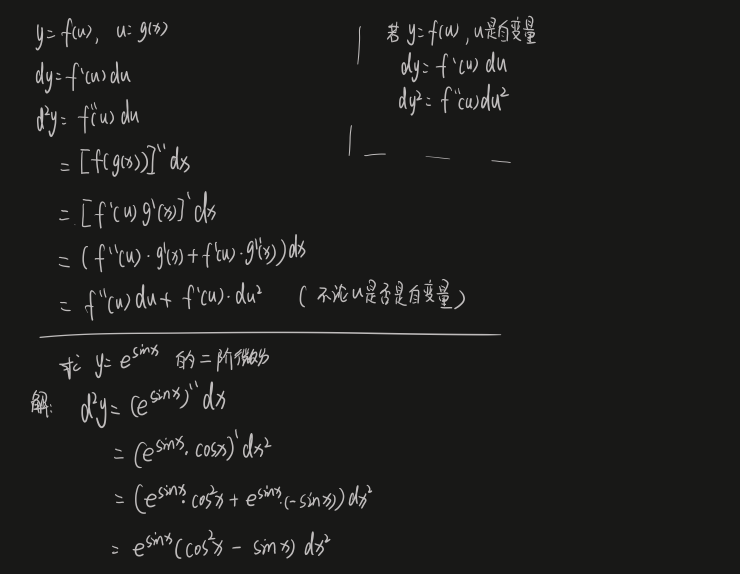 y=f(u), u=g(x)
dy=f'(u)du
d²y=f''(u)du
=[f(g(x))]''dx
=[f'(u)g'(x)]'dx
=(f''(u)·g'(x)+f'(u)·g''(x))dx
=f''(u)du+f'(u)·du² (不论u是否是自变量)
若y=f(u),u是自变量
dy=f'(u)du
dy²=f''(u)du²
求y=e^{sinx}的二阶微分
解:d²y=(e^{sinx})''dx
=(e^{sinx}·cosx)'dx²
=(e^{sinx}·cos²x+e^{sinx}·(-sinx))dx²
=e^{sinx}(cos²x-sinx)dx²